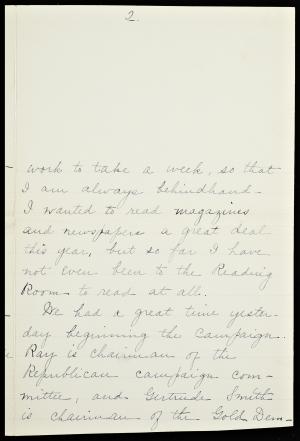 2.
work to take a week, so that
I am always behindhand -
I wanted to read magazines
and newspapers a great deal
this year, but so far I have
not even been to the Reading
Room to read at all.
We had a great time yester-
day beginning the campaign.
Ray is chairman of the
Republican campaign com-
mittee, and Gertrude Smith
is chairman of the Gold Dem-